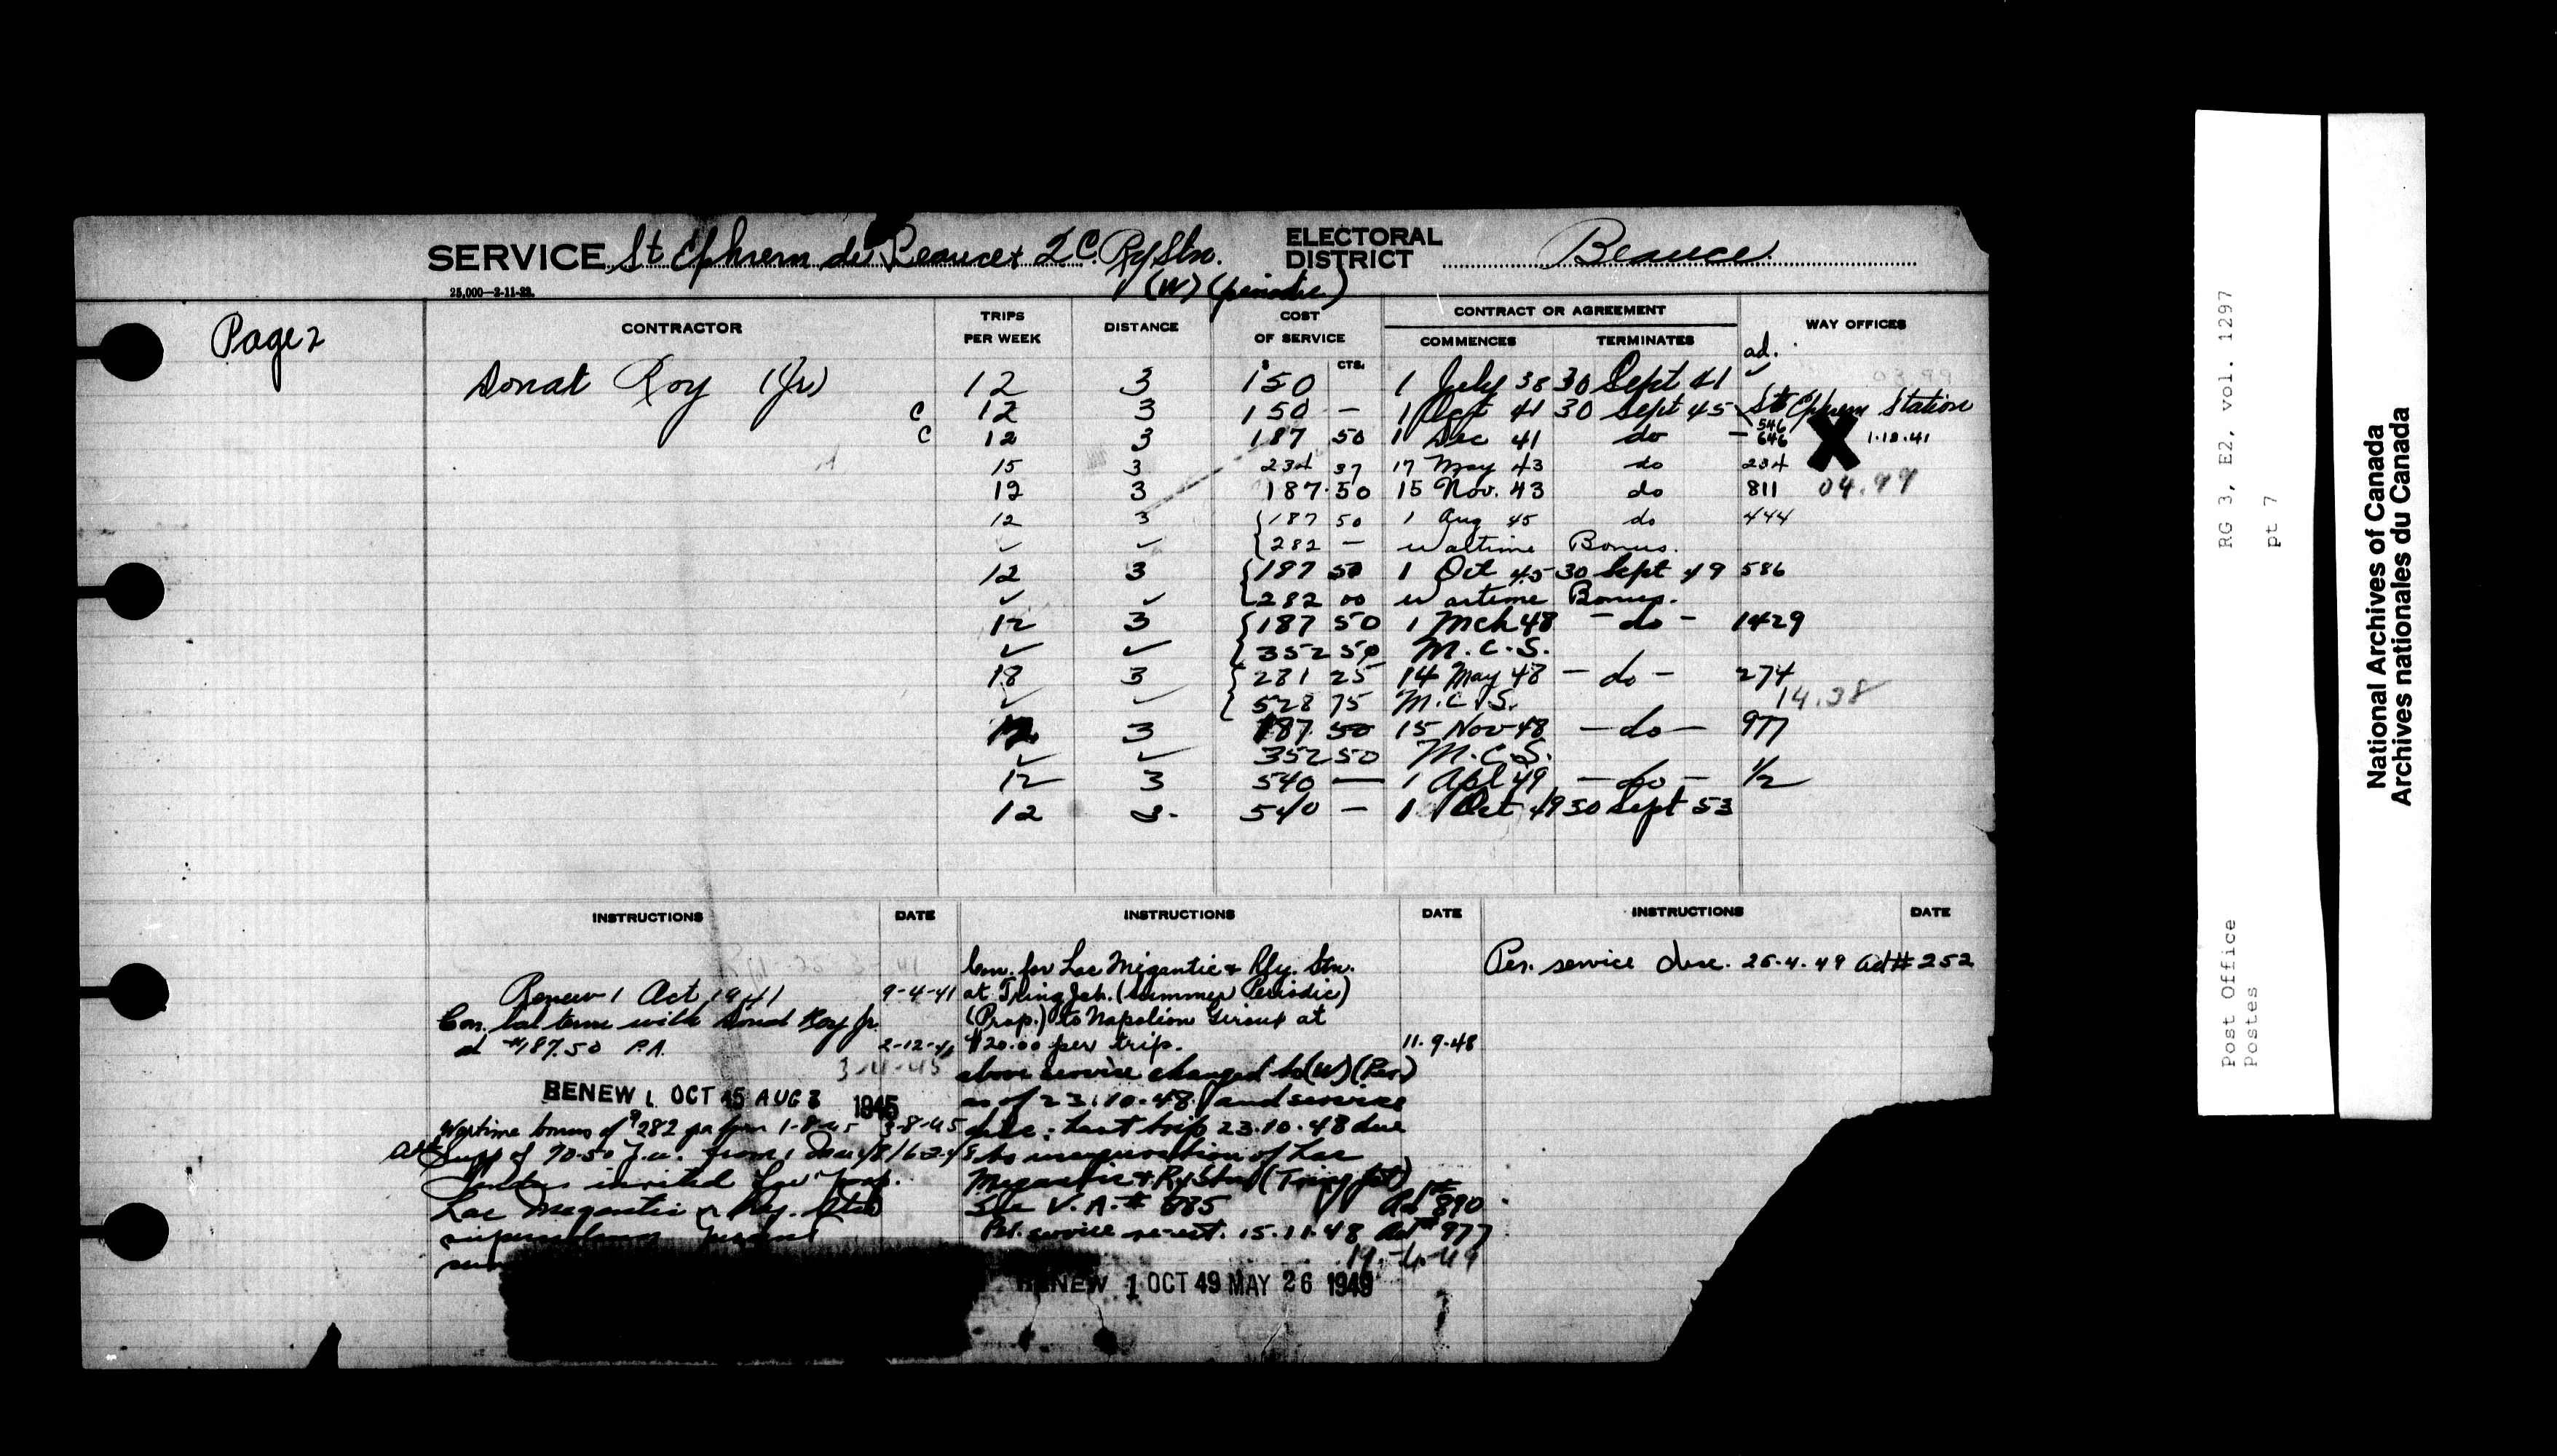 SERVICE St Ephrem de Beauce & Q.C. Ry Stn. ELECTORAL DISTRICT Beauce
25,000—2-11-23. (W) (periodic)
Page 2
CONTRACTOR TRIPS PER WEEK DISTANCE COST OF SERVICE CONTRACT OR AGREEMENT WAY OFFICES
$ CTS. COMMENCES TERMINATES ad.
Donat Roy (Jr) 12 3 150 1 July 38 30 Sept 41 ✓
C 12 3 150 — 1 Oct 41 30 Sept 45 St Ephrem Station
C 12 3 187 50 1 Dec 41 do — 546 646 X 1.12.41
15 3 234 37 17 May 43 do 234
12 3 187.50 15 Nov. 43 do 811 04.97
12 3 {187 50 1 Aug 45 do 444
✓ ✓ {282 — Wartime Bonus.
12 3 {187 50 1 Oct 45 30 Sept 49 586
✓ ✓ {282 00 Wartime Bonus.
12 3 {187 50 1 Mch 48 — do — 1429
✓ ✓ {352 50 M.C.S.
18 3 {281 25 14 May 48 — do — 274
✓ ✓ {528 75 M.C.S. 14.38
12 3 187 50 15 Nov 48 — do — 977
✓ ✓ 352 50 M.C.S.
12 3 540 — 1 Apl 49 — do — 1/2
12 3. 540 — 1 Oct 49 30 Sept 53
INSTRUCTIONS DATE
Renew 1 Oct 1941 9-4-41
Con. bal term with Donat Roy Jr.
at $187.50 P.A. 2-12-41
3-4-45
RENEW 1 OCT 45 AUG 3 1945
Wartime bonus of $282 pa from 1-8-45 3-8-45
Supp of 70.50 from 1 48
Tenders invited for prop.
Lac Megantic & Ry. Stn
INSTRUCTIONS DATE
Con. for Lac Megantic & Rly. Stn.
at Tring Jct. (Summer Periodic)
(Prop.) to Napoleon Giroux at
$20.00 per trip. 11.9.48
above service changed to (W) (Per)
as of 23.10.48 and service
disc: last trip 23.10.48 due
to of Lac
Megantic & Ry Stn (Tring Jct)
See V.A. # 885 Ad # 890
Per. service re-est. 15.11.48 Ad # 977
19.-4-49
RENEW 1 OCT 49 MAY 26 1949
INSTRUCTIONS DATE
Per. service disc. 25.4.49 Ad # 252
RG 3, E2, vol. 1297
pt 7
Post Office
Postes
National Archives of Canada
Archives nationales du Canada